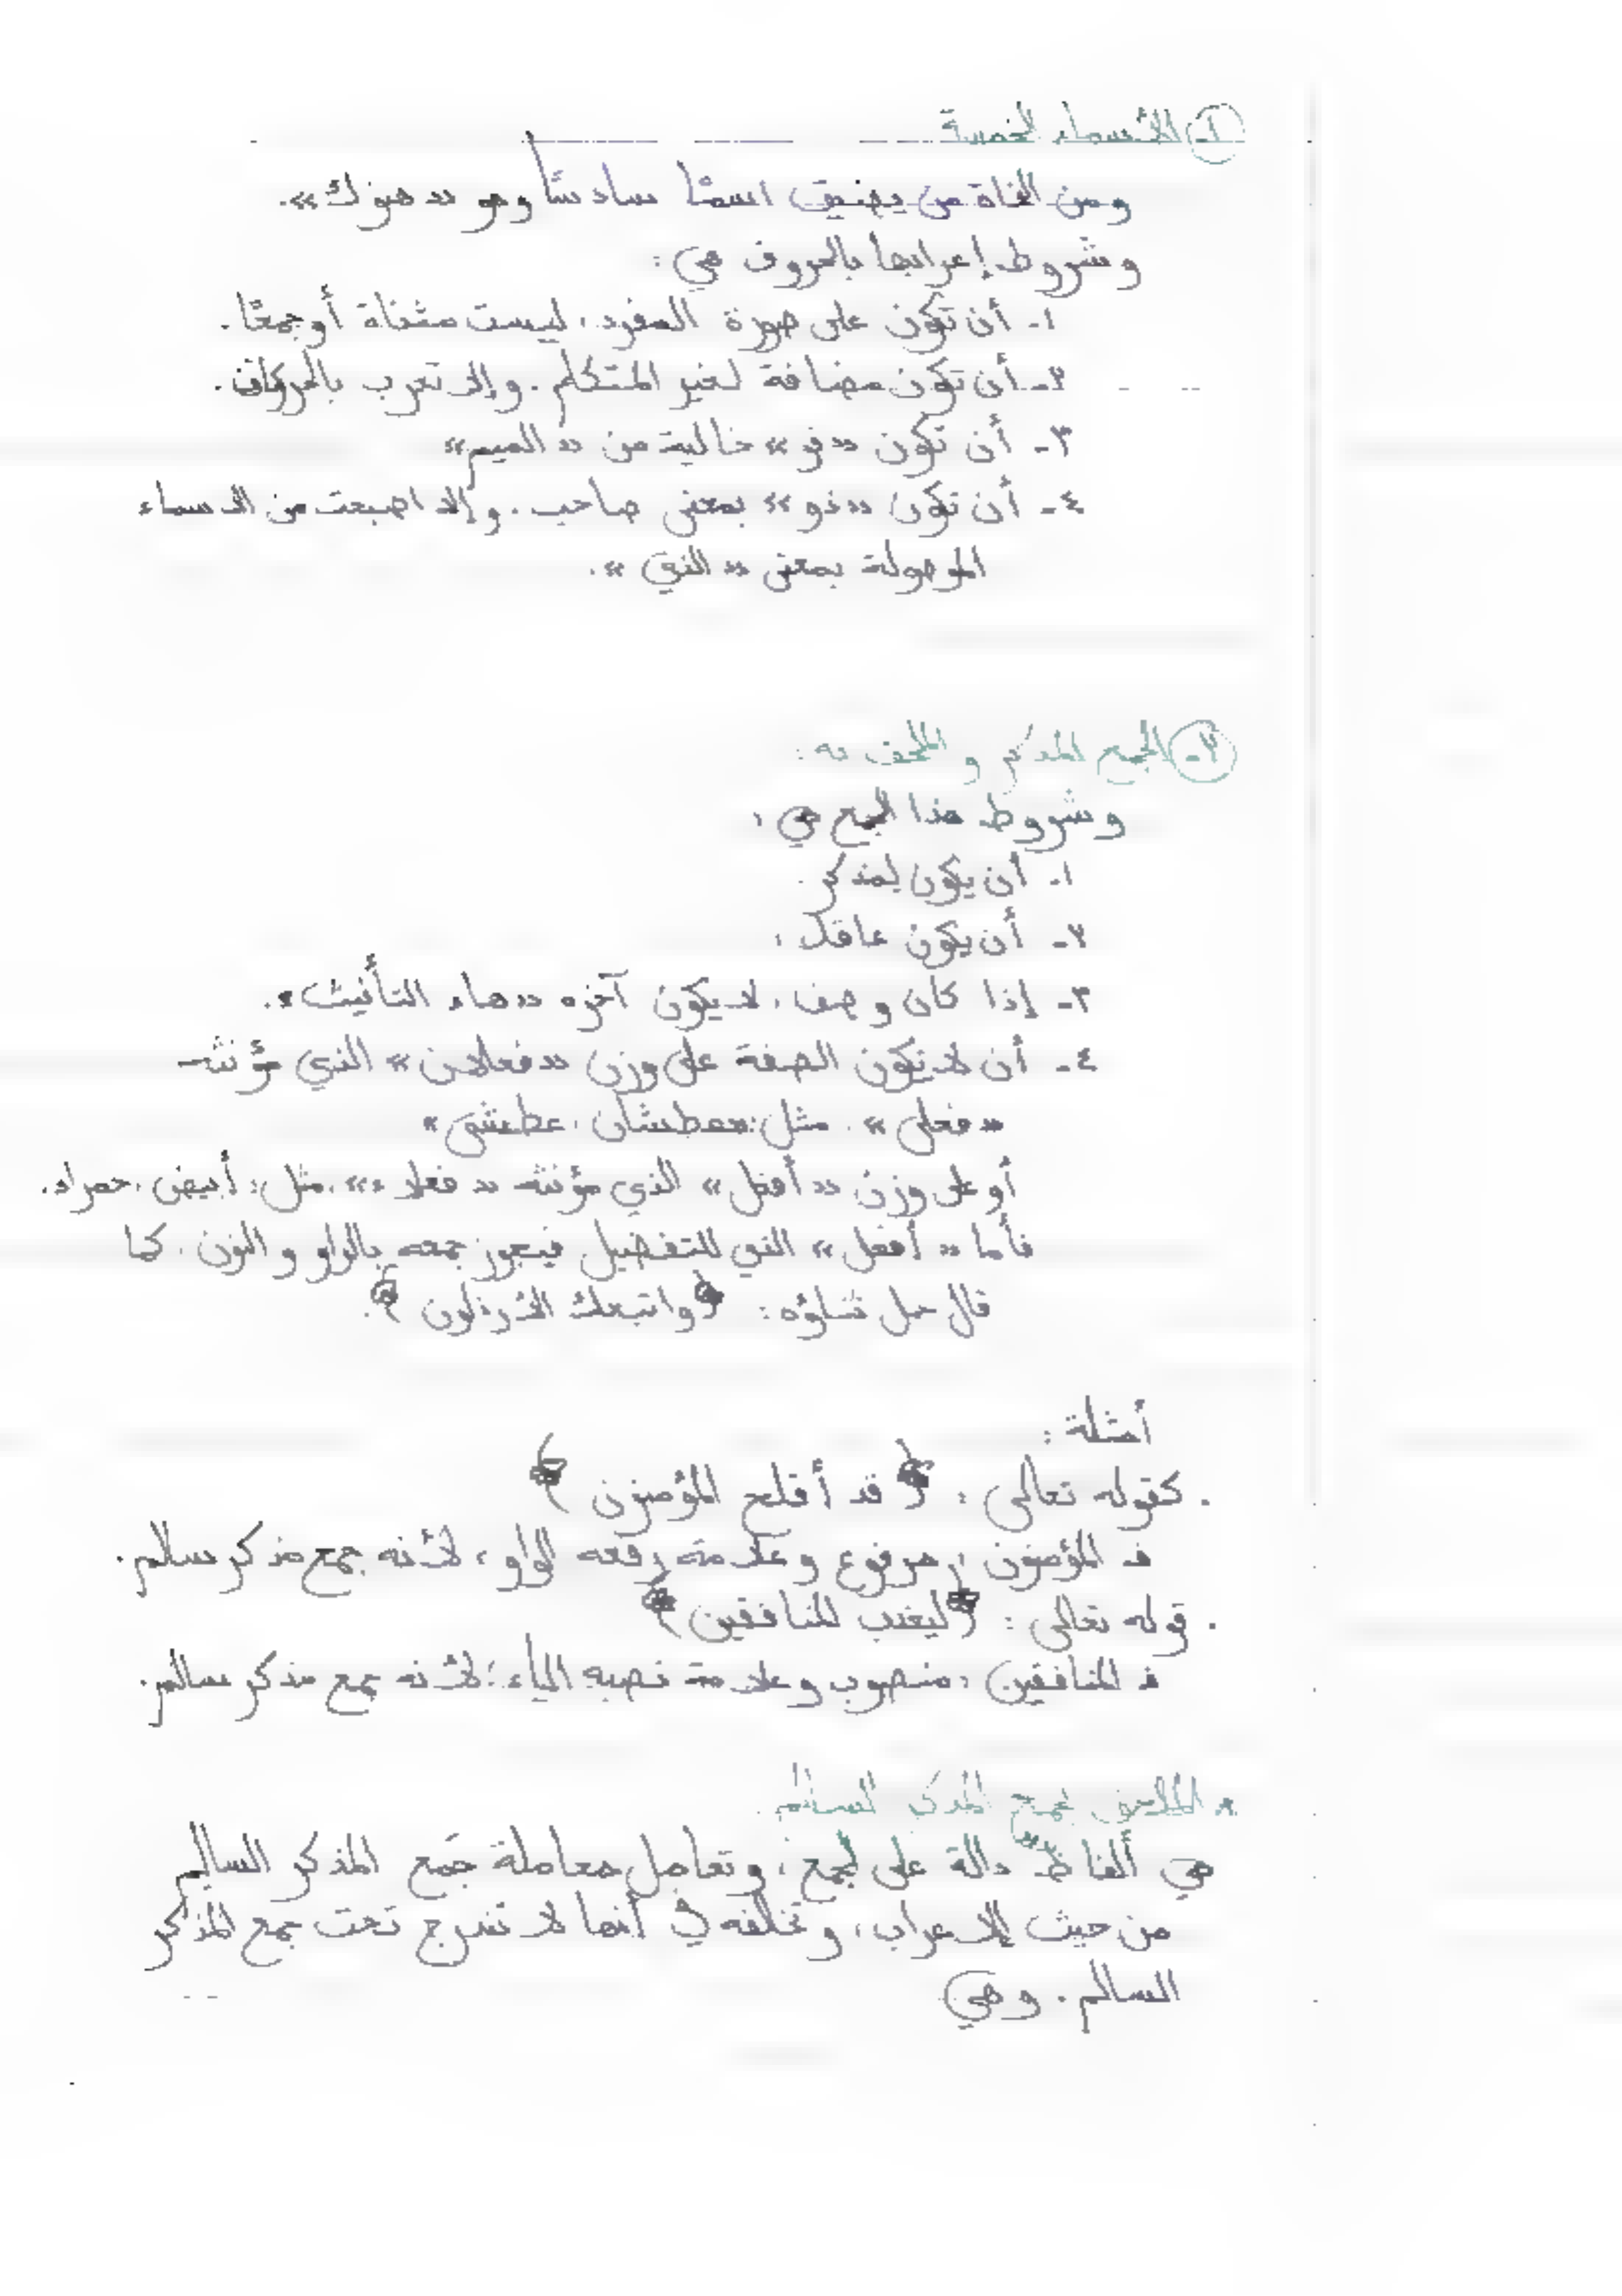 ١- الأسماء الخمسة
ومن النحاة من يضيف اسمًا سادسًا وهو «هنوك».
وشروط إعرابها بالحروف هي:
١- أن تكون على صورة المفرد، ليست مثناة أو جمعًا.
٢- أن تكون مضافة لغير المتكلم. وإلا تعرب بالحركات.
٣- أن تكون «فو» خالية من «الميم»
٤- أن تكون «ذو» بمعنى صاحب. وإلا اصبحت من الاسماء
الموصولة بمعنى «الذي».
٢- الجمع المذكر و الملحق به:
وشروط هذا الجمع هي:
١- أن يكون لمذكر.
٢- أن يكون عاقلا.
٣- إذا كان وصف، لا يكون آخره «هاء التأنيث».
٤- أن لا تكون الصفة على وزن «فعلان» الذي مؤنثه
«فعلى». مثل: «عطشان، عطشى»
أو على وزن «أفعل» الذي مؤنثه «فعلاء»، مثل: أبيض، حمراء.
فأما «أفعل» الذي للتفضيل فيجوز جمعه بالواو و النون، كما
قال جل شاؤه: ﴿واتبعك الأرذلون﴾.
أمثلة:
. كقوله تعالى: ﴿قد أفلح المؤمنون﴾
فـ المؤمنون: مرفوع وعلامة رفعه الواو، لأنه جمع مذكر سالم.
. قوله تعالى: ﴿ليعذب المنافقين﴾
فـ المنافقين: منصوب وعلامة نصبه الياء؛ لأنه جمع مذكر سالم.
* الملاحق بجمع المذكر السالم.
هي ألفاظ دالة على الجمع، وتعامل معاملة جمع المذكر السالم
من حيث الإعراب، وتخالفه في أنها لا تندرج تحت جمع المذكر
السالم. وهي